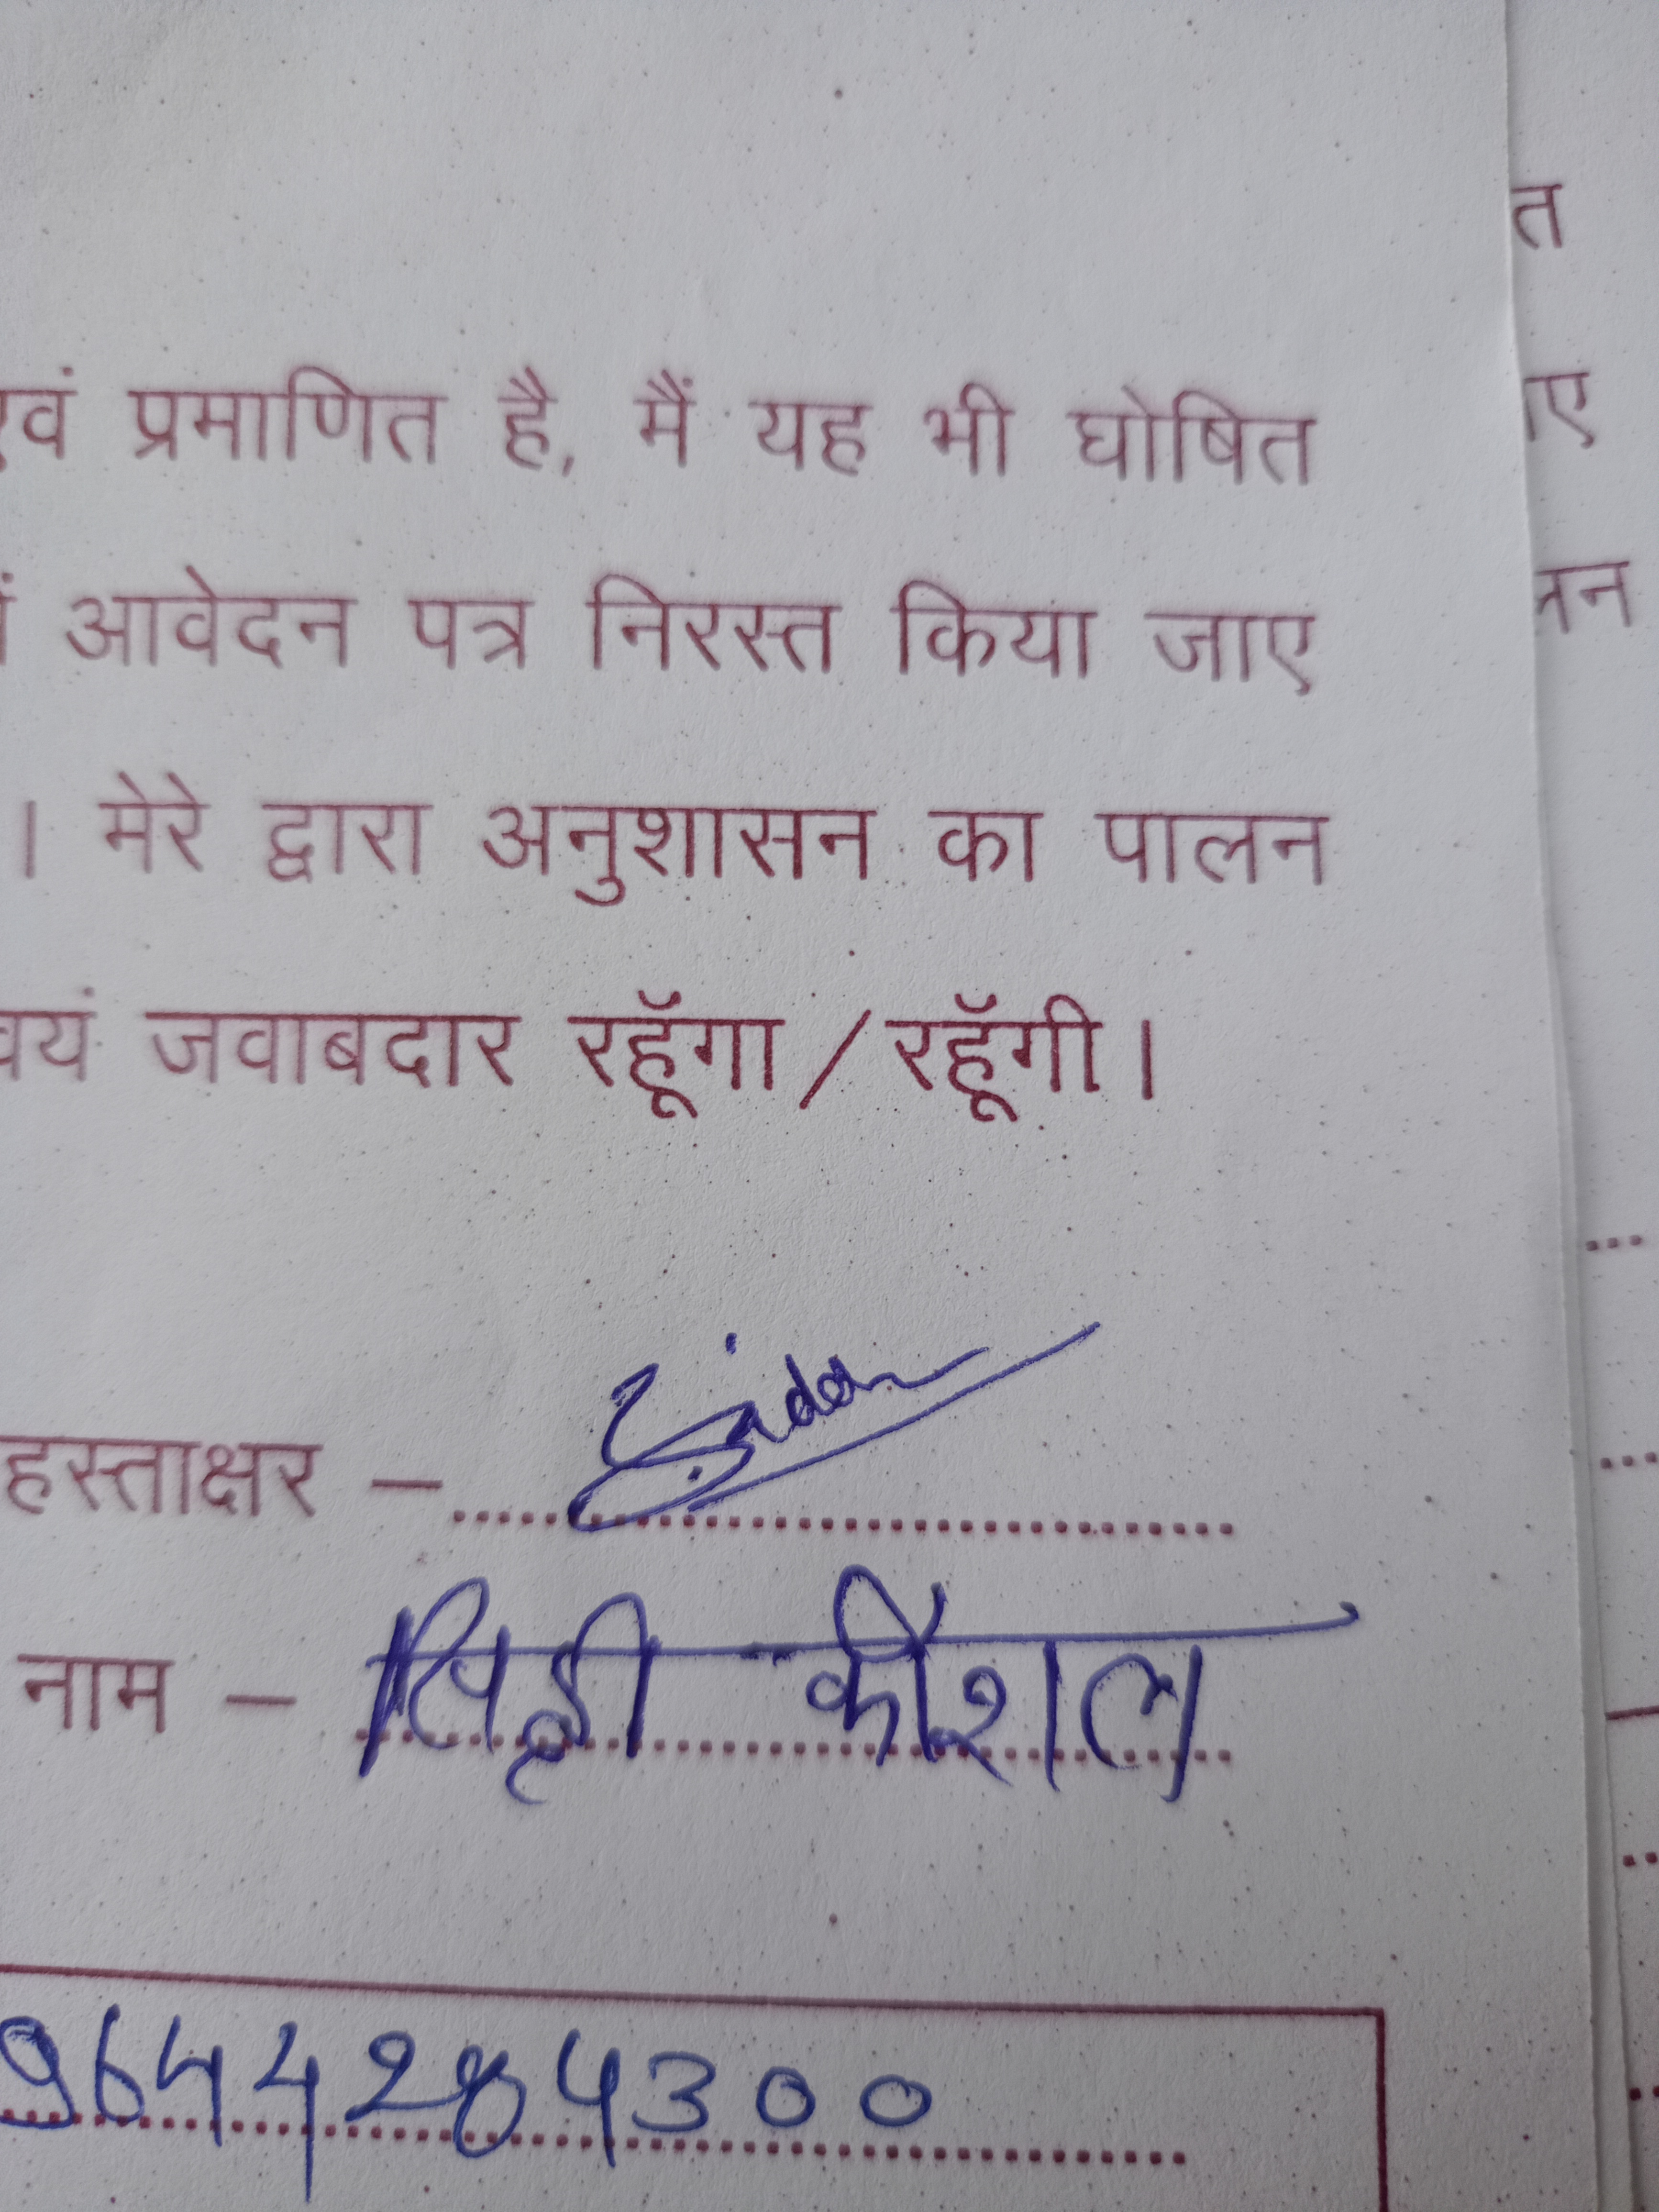 एवं प्रमाणित है, मैं यह भी घोषित
आवेदन पत्र निरस्त किया जाए
। मेरे द्वारा अनुशासन का पालन
स्वयं जवाबदार रहूँगा/रहूँगी।
हस्ताक्षर –
नाम – कौशल
9644284300
त
ए